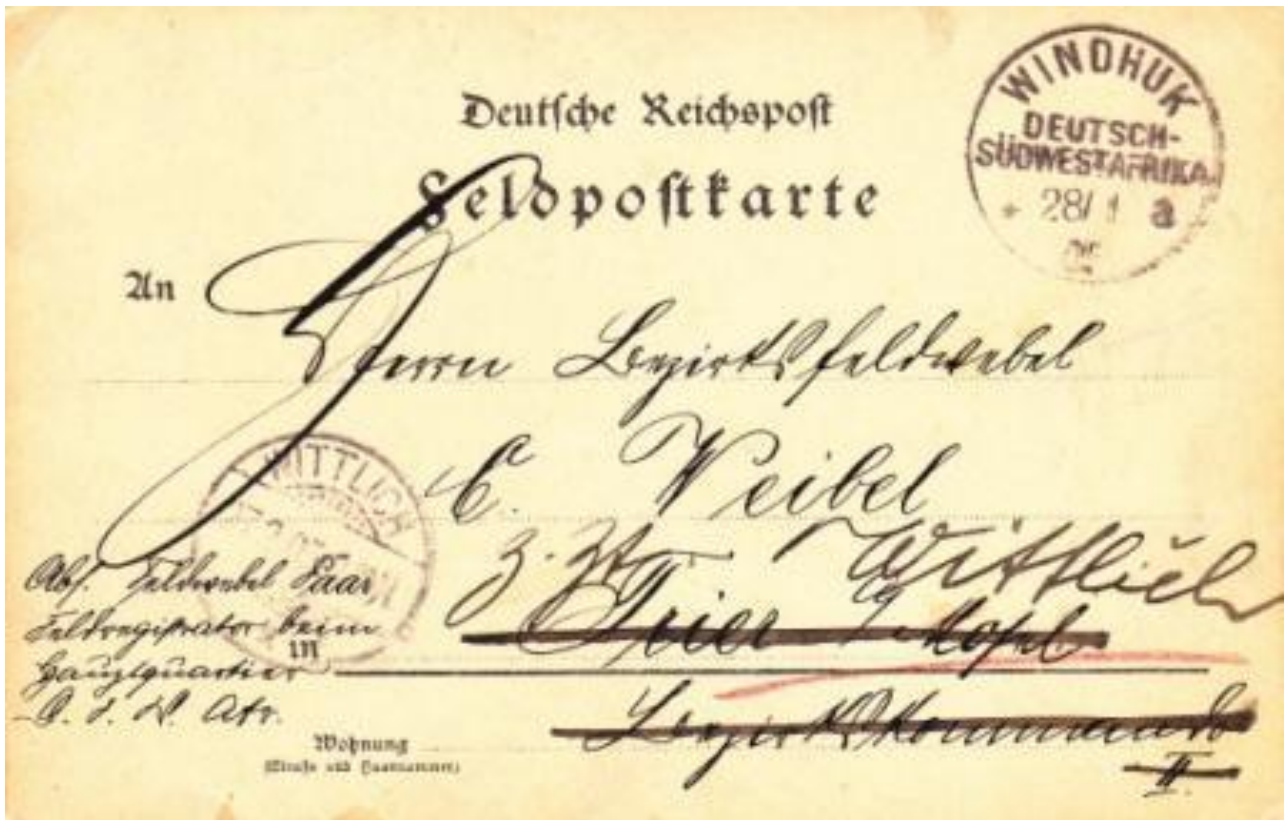 Deutsche Reichspost
Feldpostkarte
WINDHUK
DEUTSCH-
SÜDWESTAFRIKA
28/1 a
An
Herrn Bezirksfeldwebel
E. Weibel
z. Zt. Wittlich
Trier Mosel
Bezirkskommando
II.
WITTLICH
Abs. Feldwebel Saar
Feldregistrator beim
in
Hauptquartier
D. S. W. Afr.
Wohnung
(Straße und Hausnummer)